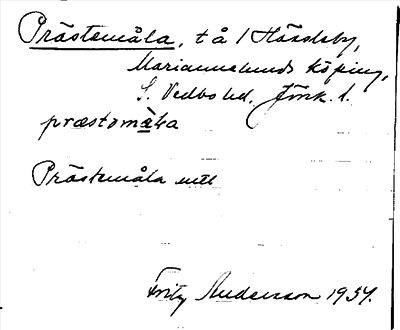 Prästemåla, t å 1 Hässleby,
Mariannelunds köping,
S. Vedbo hd. Jönk. l.
præstomàla
Prästemåla mtl
Fritz Andersson 1934.